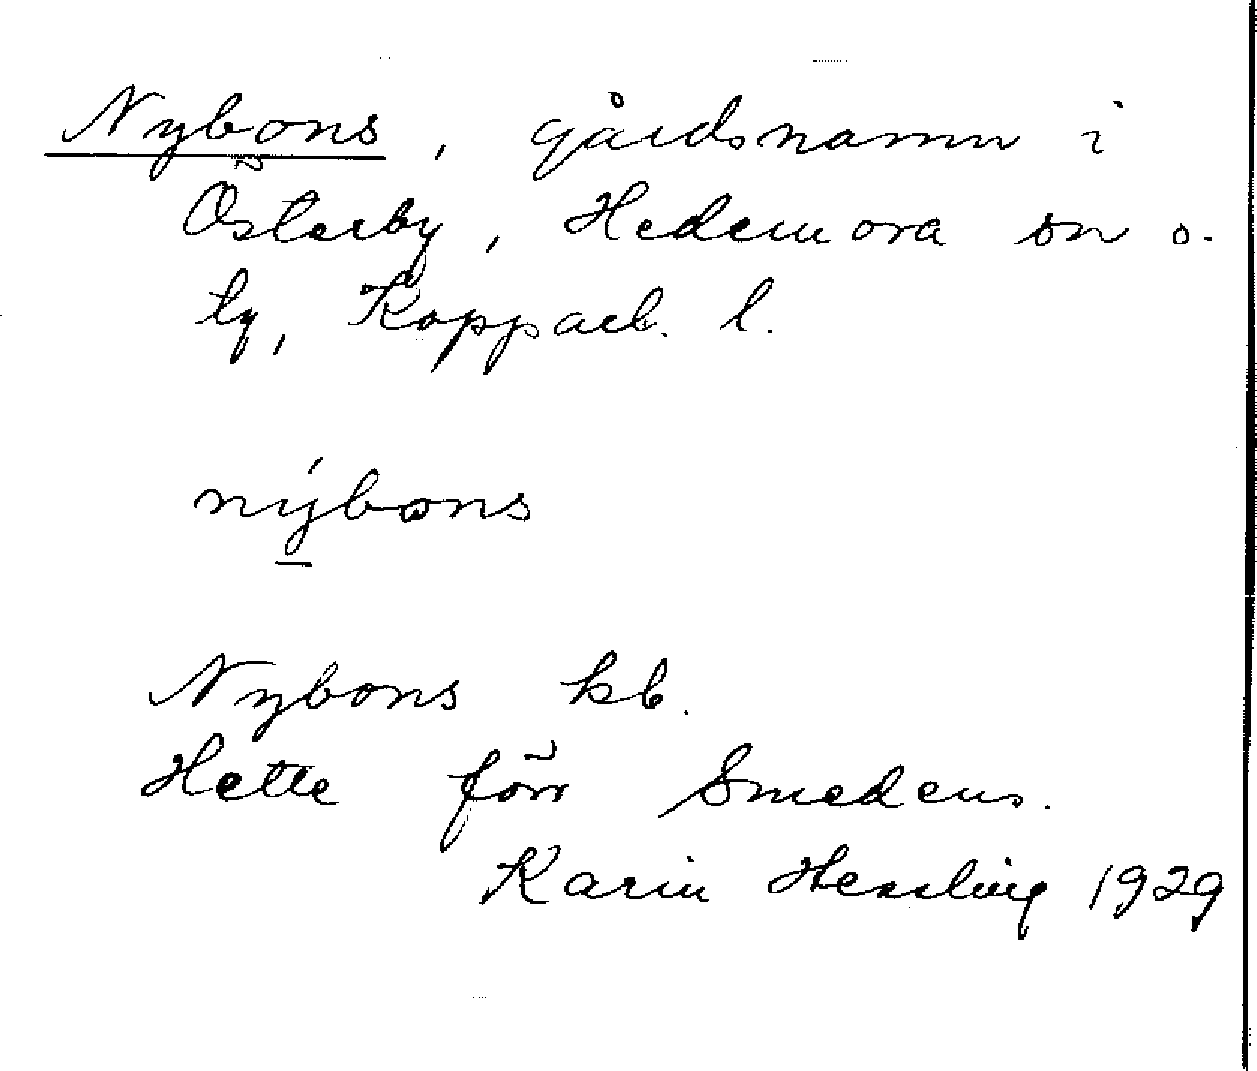 Nybons, gårdsnamn i
Österby, Hedemora sn o.
tg, Kopparb. l.
nýbons
Nybons kb.
Hette förr Smedens.
Karin Hessling 1929